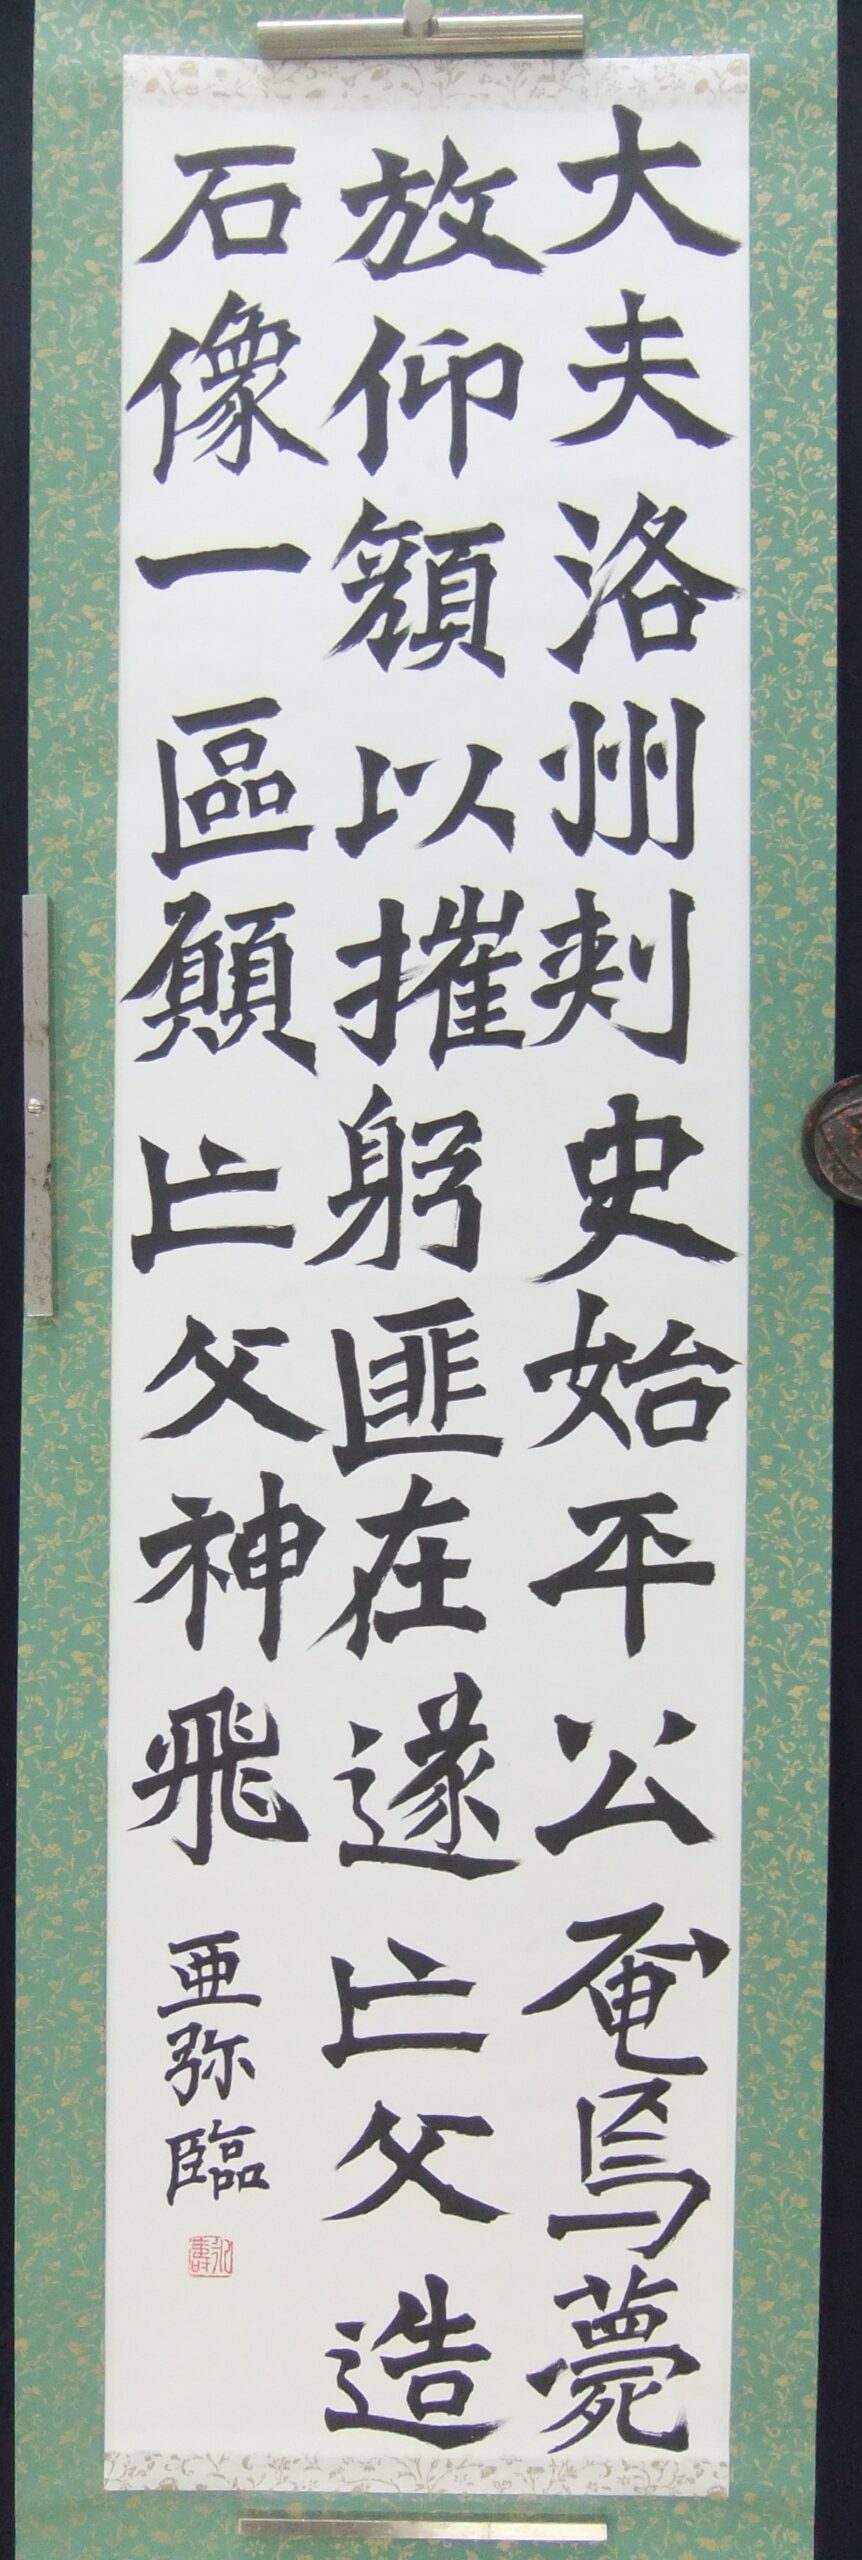 大夫洛州刾史始平公奄焉薨
放仰顔以摧躬匪在遂亡父造
石像一區願亡父神飛
亜弥臨